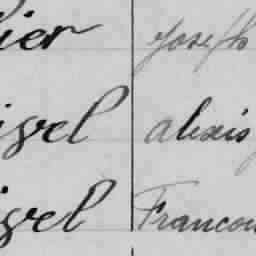 ier Joseph
igel alexis
igel Francois